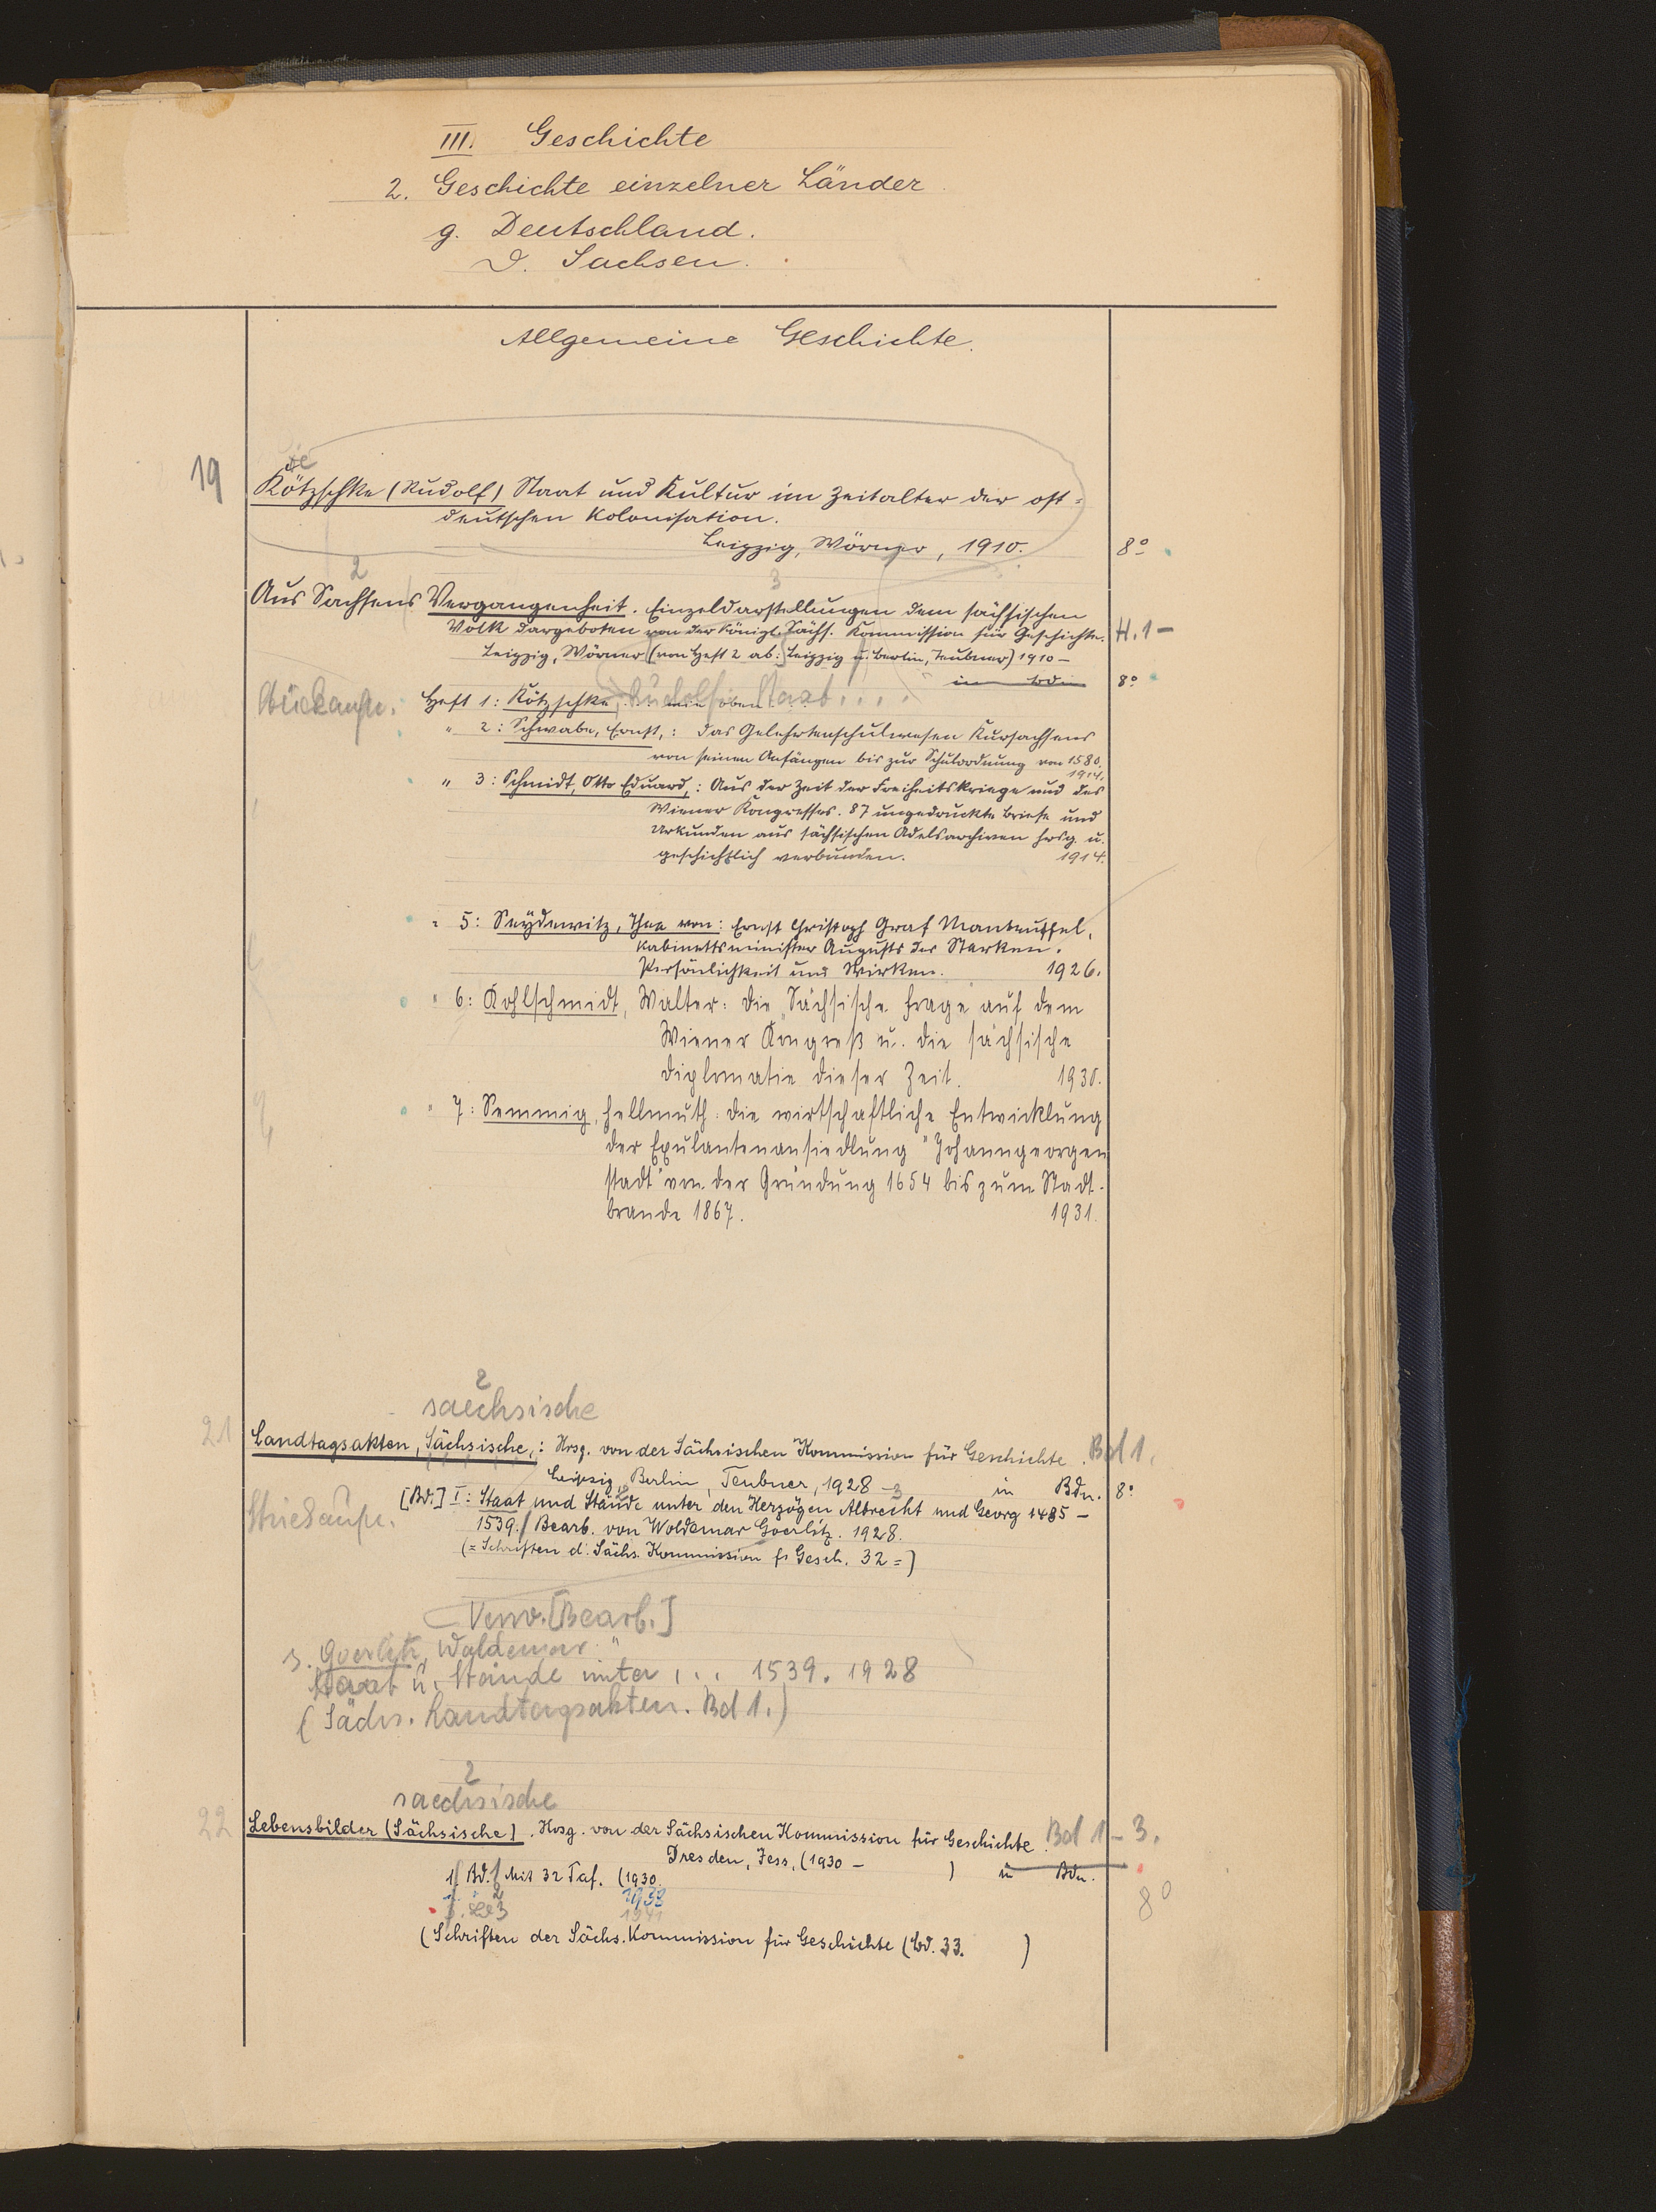 III. Geschichte
2. Geschichte einzelner Länder
g. Deutschland.
D. Sachsen.
Allgemeine Geschichte.
19
Kötzschke (Rudolf) Staat und Kultur im Zeitalter der ost-
deutschen Kolonisation.
Leipzig, Wörner, 1910. 8°
2 3
Aus Sachsens Vergangenheit. Einzeldarstellungen dem sächsischen
Volk dargeboten von der Königl. Sächs. Kommission für Geschichte. H. 1 -
Leipzig, Wörner (von Heft 2 ab: Leipzig u. Berlin, Teubner) 1910 -
in Bdn 8°
Stückaufn. Heft 1: Kötzschke, Rudolf: Staat . . . wie oben
" 2: Schwabe, Ernst,: Das Gelehrtenschulwesen Kursachsens
von seinen Anfängen bis zur Schulordnung von 1580.
1914.
" 3: Schmidt, Otto Eduard,: Aus der Zeit der Freiheitskriege und des
Wiener Kongresses. 87 ungedruckte Briefe und
Urkunden aus sächsischen Adelsarchiven hrsg. u.
geschichtlich verbunden. 1914.
" 5: Seydewitz, Thea von: Ernst Christoph Graf Manteuffel,
Kabinettsminister Augusts des Starken.
Persönlichkeit und Wirken. 1926.
" 6: Kohlschmidt, Walter: Die "Sächsische Frage" auf dem
Wiener Kongreß u. die sächsische
Diplomatie dieser Zeit. 1930.
" 7: Semmig, Hellmuth: Die wirtschaftliche Entwicklung
der Exulantenansiedlung "Johanngeorgen
stadt" von der Gründung 1654 bis zum Stadt-
brande 1867. 1931.
2
saechsische
21 Landtagsakten, Sächsische,: Hrsg. von der Sächsischen Kommission für Geschichte. Bd 1.
Leipzig, Berlin, Teubner, 1928 - in Bdn. 8°
[Bd.] I: Staat und Stände unter den Herzögen Albrecht und Georg 1485 -
Stückaufn. 1539. / Bearb. von Woldemar Goerlitz. 1928.
(= Schriften d. Sächs. Kommission f. Gesch. 32 =)
Verw. [Bearb.]
s. Goerlitz, Woldemar:
Staat u. Stände unter . . . 1539. 1928
(Sächs. Landtagsakten. Bd 1.)
2
saechsische
22 Lebensbilder (Sächsische). Hrsg. von der Sächsischen Kommission für Geschichte. Bd 1 - 3.
Dresden, Jess, (1930 - ) in Bdn.
1 / Bd. / Mit 32 Taf. (1930. 8°
2 1938
3 1941
(Schriften der Sächs. Kommission für Geschichte (Bd. 33. )